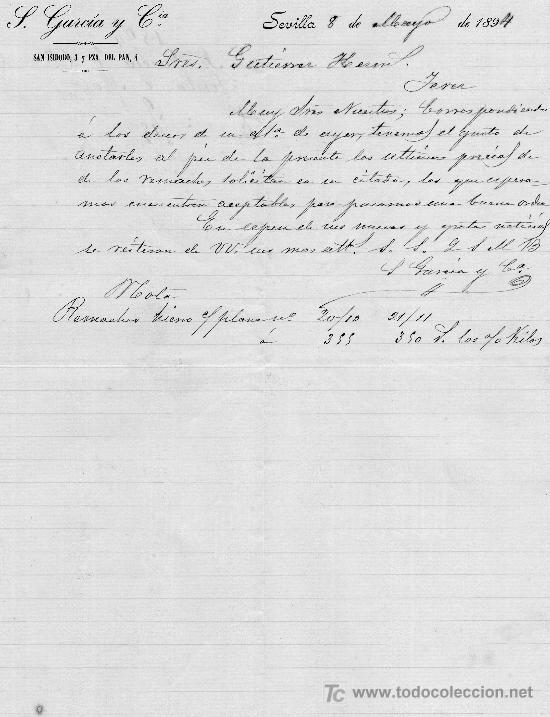 S. García y Cía
Sevilla 8 de Mayo de 1894
SAN ISIDORO, 3 y PZA. DEL PAN, 4
Sres. Gutierrez Herms.
Jerez
Muy Sres Nuestros; Correspondiendo
á los deseos de su att.ª de ayer, tenemos el gusto de
anotarles al pié de la presente los ultimos precios de
de los remaches solicitan en su citada, los que espera-
mos encuentren aceptables para pasarnos una buena orden
En espera de sus nuevas y gratas noticias
se reiteran de VV. sus mas att. S. S. Q S M B
S García y Cª
Nota
Remaches hierro c/ plana nº 20/10 21/11
á 355 350 los % Kilos
www.todocoleccion.net